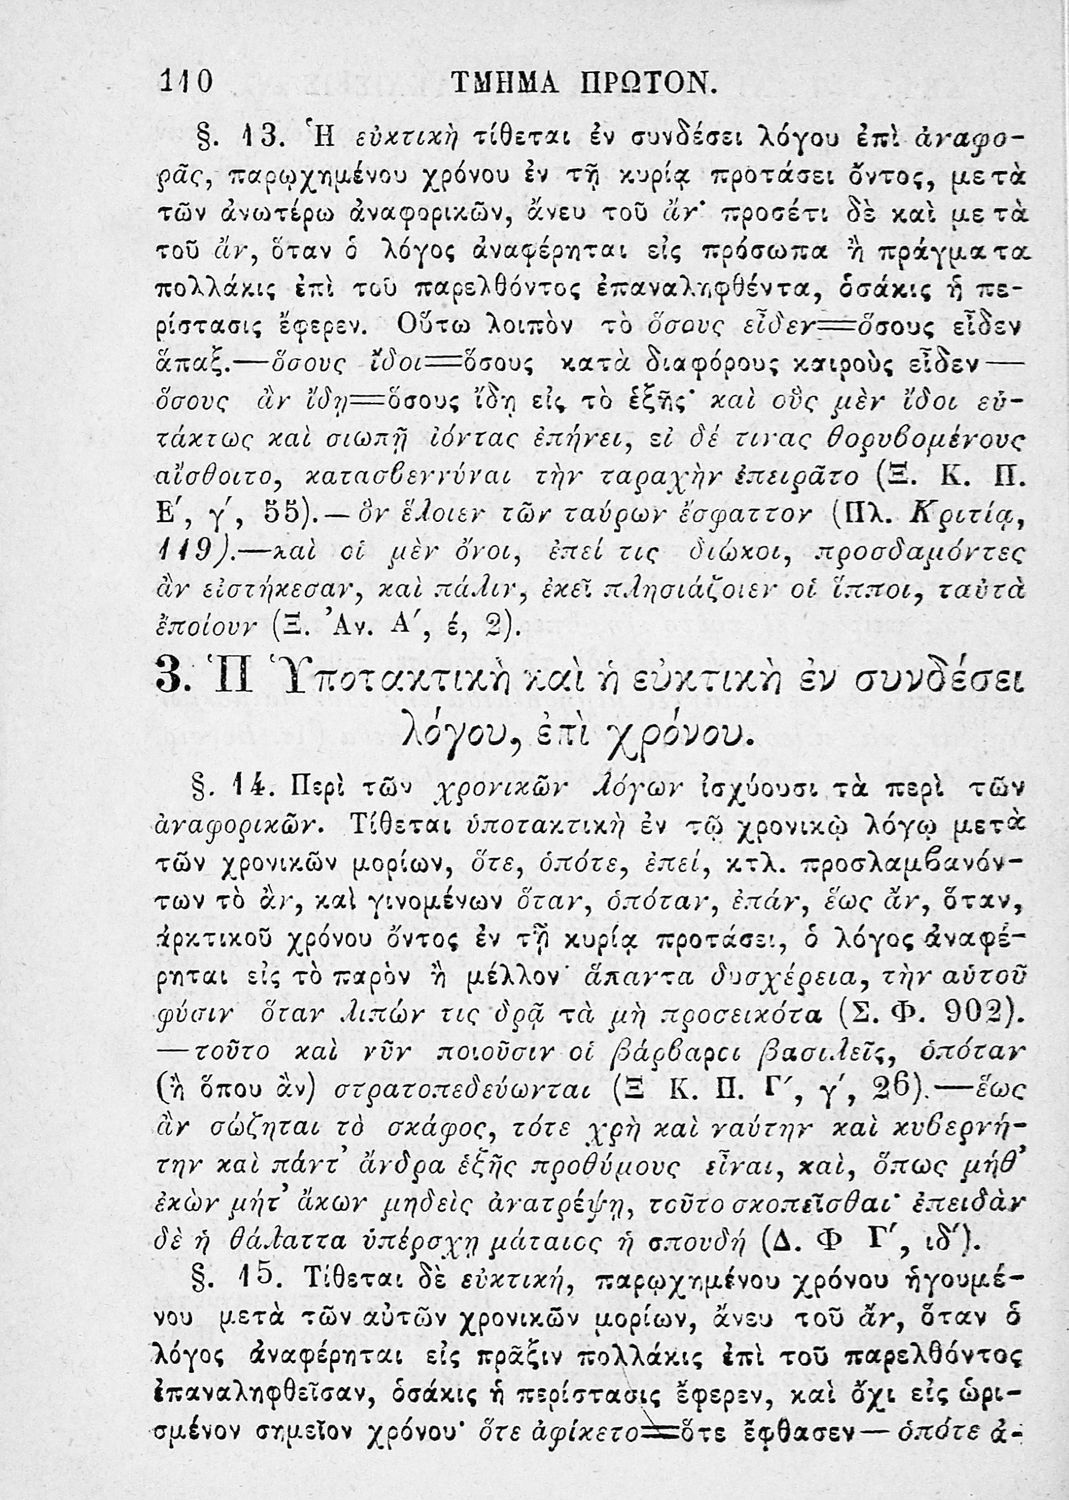 110 ΤΜΗΜΑ ΠΡΩΤΟΝ.
§. 13. Ἡ εὐκτικὴ τίθεται ἐν συνδέσει λόγου ἐπὶ ἀναφο-
ρᾶς, παρῳχημένου χρόνου ἐν τῇ κυρίᾳ προτάσει ὄντος, μετὰ
τῶν ἀνωτέρω ἀναφορικῶν, ἄνευ τοῦ ἄν· προσέτι δὲ καὶ μετὰ
τοῦ ἄν, ὅταν ὁ λόγος ἀναφέρηται εἰς πρόσωπα ἢ πράγματα
πολλάκις ἐπὶ τοῦ παρελθόντος ἐπαναληφθέντα, ὁσάκις ἡ πε-
ρίστασις ἔφερεν. Οὕτω λοιπὸν τὸ ὅσους εἶδεν=ὅσους εἶδεν
ἅπαξ.—ὅσους ἴδοι=ὅσους κατὰ διαφόρους καιροὺς εἶδεν—
ὅσους ἂν ἴδῃ=ὅσους ἴδῃ εἰς τὸ ἑξῆς· καὶ οὓς μὲν ἴδοι εὐ-
τάκτως καὶ σιωπῇ ἰόντας ἐπῄνει, εἰ δέ τινας θορυβομένους
αἴσθοιτο, κατασβεννύναι τὴν ταραχὴν ἐπειρᾶτο (Ξ. Κ. Π.
Ε΄, γ΄, 55).—ὃν ἕλοιεν τῶν ταύρων ἔσφαττον (Πλ. Κριτίᾳ,
119).—καὶ οἱ μὲν ὄνοι, ἐπεί τις διώκοι, προσδαμόντες
ἂν εἱστήκεσαν, καὶ πάλιν, ἐκεῖ πλησιάζοιεν οἱ ἵπποι, ταὐτὰ
ἐποίουν (Ξ. Ἀν. Α΄, έ, 2).
3. Ἡ Ὑποτακτικὴ καὶ ἡ εὐκτικὴ ἐν συνδέσει
λόγου, ἐπὶ χρόνου.
§. 14. Περὶ τῶν χρονικῶν λόγων ἰσχύουσι τὰ περὶ τῶν
ἀναφορικῶν. Τίθεται ὑποτακτικὴ ἐν τῷ χρονικῷ λόγῳ μετὰ
τῶν χρονικῶν μορίων, ὅτε, ὁπότε, ἐπεί, κτλ. προσλαμβανόν-
των τὸ ἂν, καὶ γινομένων ὅταν, ὁπόταν, ἐπάν, ἕως ἄν, ὅταν,
ἀρκτικοῦ χρόνου ὄντος ἐν τῇ κυρίᾳ προτάσει, ὁ λόγος ἀναφέ-
ρηται εἰς τὸ παρὸν ἢ μέλλον· ἅπαντα δυσχέρεια, τὴν αὑτοῦ
φύσιν ὅταν λιπών τις δρᾷ τὰ μὴ προσεικότα (Σ. Φ. 902).
—τοῦτο καὶ νῦν ποιοῦσιν οἱ βάρβαροι βασιλεῖς, ὁπόταν
(ἢ ὅπου ἂν) στρατοπεδεύωνται (Ξ Κ. Π. Γ΄, γ΄, 26).—ἕως
ἂν σώζηται τὸ σκάφος, τότε χρὴ καὶ ναύτην καὶ κυβερνή-
την καὶ πάντ’ ἄνδρα ἑξῆς προθύμους εἶναι, καὶ, ὅπως μήθ’
ἑκὼν μήτ’ ἄκων μηδεὶς ἀνατρέψῃ, τοῦτο σκοπεῖσθαι· ἐπειδὰν
δὲ ἡ θάλαττα ὑπέρσχῃ μάταιος ἡ σπουδή (Δ. Φ Γ΄, ιδ΄).
§. 15. Τίθεται δὲ εὐκτική, παρῳχημένου χρόνου ἡγουμέ-
νου μετὰ τῶν αὐτῶν χρονικῶν μορίων, ἄνευ τοῦ ἄν, ὅταν ὁ
λόγος ἀναφέρηται εἰς πρᾶξιν πολλάκις ἐπὶ τοῦ παρελθόντος
ἐπαναληφθεῖσαν, ὁσάκις ἡ περίστασις ἔφερεν, καὶ ὄχι εἰς ὡρι-
σμένον σημεῖον χρόνου· ὅτε ἀφίκετο=ὅτε ἔφθασεν—ὁπότε ἀ-